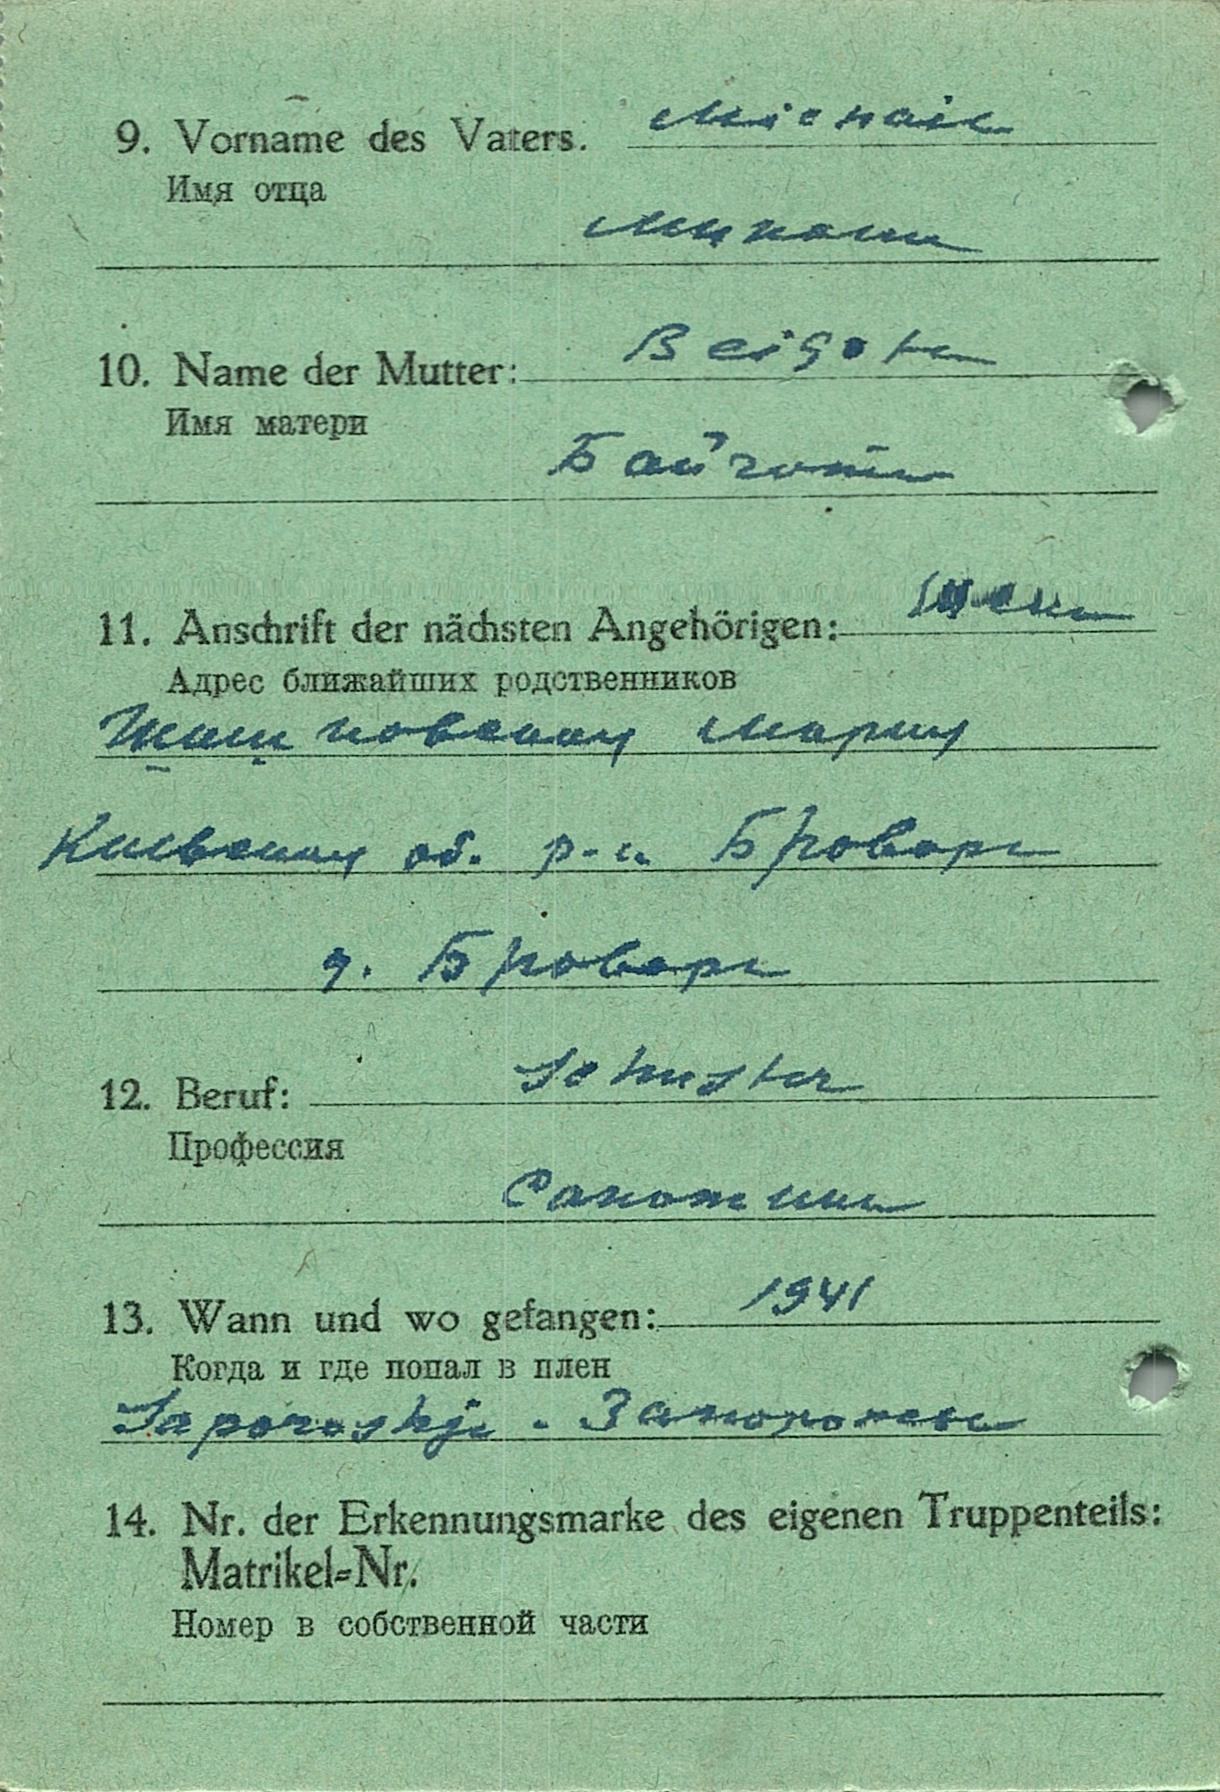 9. Vorname des Vaters. Michail
Имя отца
Михаил
10. Name der Mutter:
Имя матери
11. Anschrift der nächsten Angehörigen:
Адрес ближайших родственников
Киевская об. р-н Бровары
Бровары
12. Beruf: Schuster
Профессия
Сапожник
13. Wann und wo gefangen: 1941
Когда и где попал в плен
Saporoshje - Запорожье
14. Nr. der Erkennungsmarke des eigenen Truppenteils:
Matrikel=Nr.
Номер в собственной части